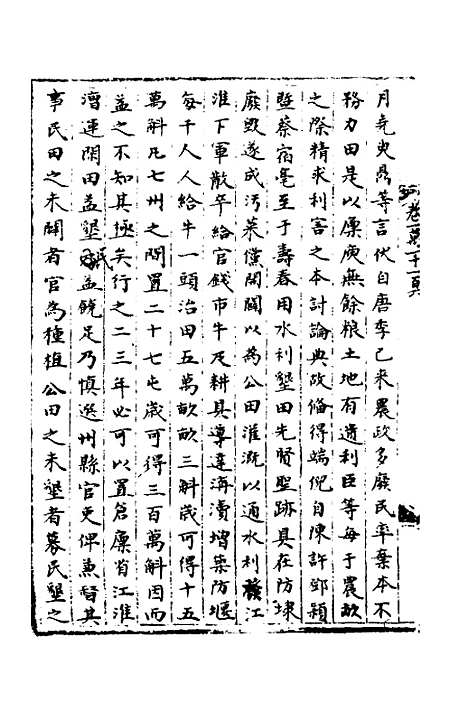 月堯叟、爲等言伏自唐季已來農政多廢民率棄本不
務力田是以廩庾無餘粮土地有遺利臣等每于農畝
之際精求利害之本討論典故俻得端倪自陳許鄧潁
暨蔡宿亳至于壽春用水利墾田先賢聖跡具在防埭
廢毁遂成汚萊儻開闢以為公田灌溉以通水利發江
淮下軍散卒給官錢市牛及耕具導達溝瀆增築防堰
每千人人給牛一頭治田五萬畝畝三斛歲可得十五
萬斛凡七州之間置二十七屯歲可得三百萬斛因而
益之不知其極矣行之二三年必可以置倉廩省江淮
漕運閑田益墾民益饒足乃慎選州縣官吏俾兼督其
事民田之未闢者官為種植公田之未墾者募民墾之
卷一第二十一頁